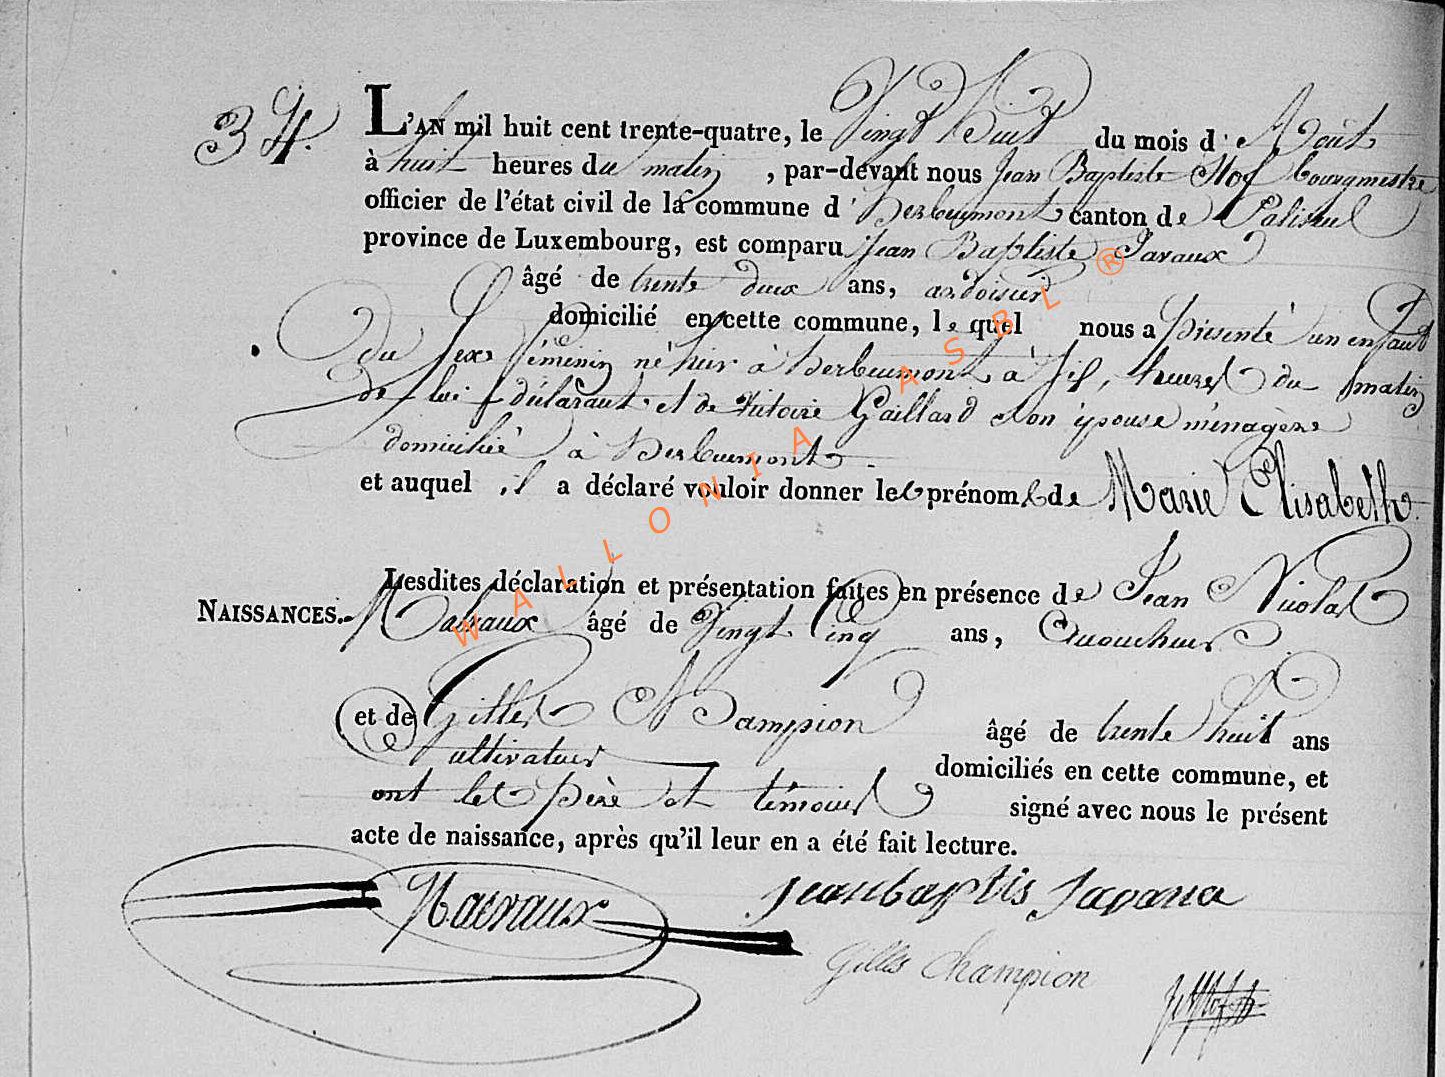 34.
L'AN mil huit cent trente-quatre, le Vingt huit du mois d'Août
à huit heures du matin, par-devant nous Jean Baptiste Hof bourgmestre
officier de l'état civil de la commune d'herbeumont canton de Paliseul
province de Luxembourg, est comparu Jean Baptiste Javaux
âgé de trente deux ans, ardoisier
domicilié en cette commune, lequel nous a présenté un enfant
du sexe féminin né hier à herbeumont à six heures du matin
de lui déclarant et de Victoire Gaillard son épouse ménagère
domiciliée à herbeumont.
et auquel il a déclaré vouloir donner les prénoms de Marie Elisabeth.
Lesdites déclaration et présentation faites en présence de Jean Nicolas
NAISSANCES.
âgé de Vingt Cinq ans,
et de Gilles Champion âgé de trente huit ans
Cultivateur
domiciliés en cette commune, et
ont les père et témoins signé avec nous le présent
acte de naissance, après qu'il leur en a été fait lecture.
Jean baptis
Gilles Champion
WALLONIA ASBL ®